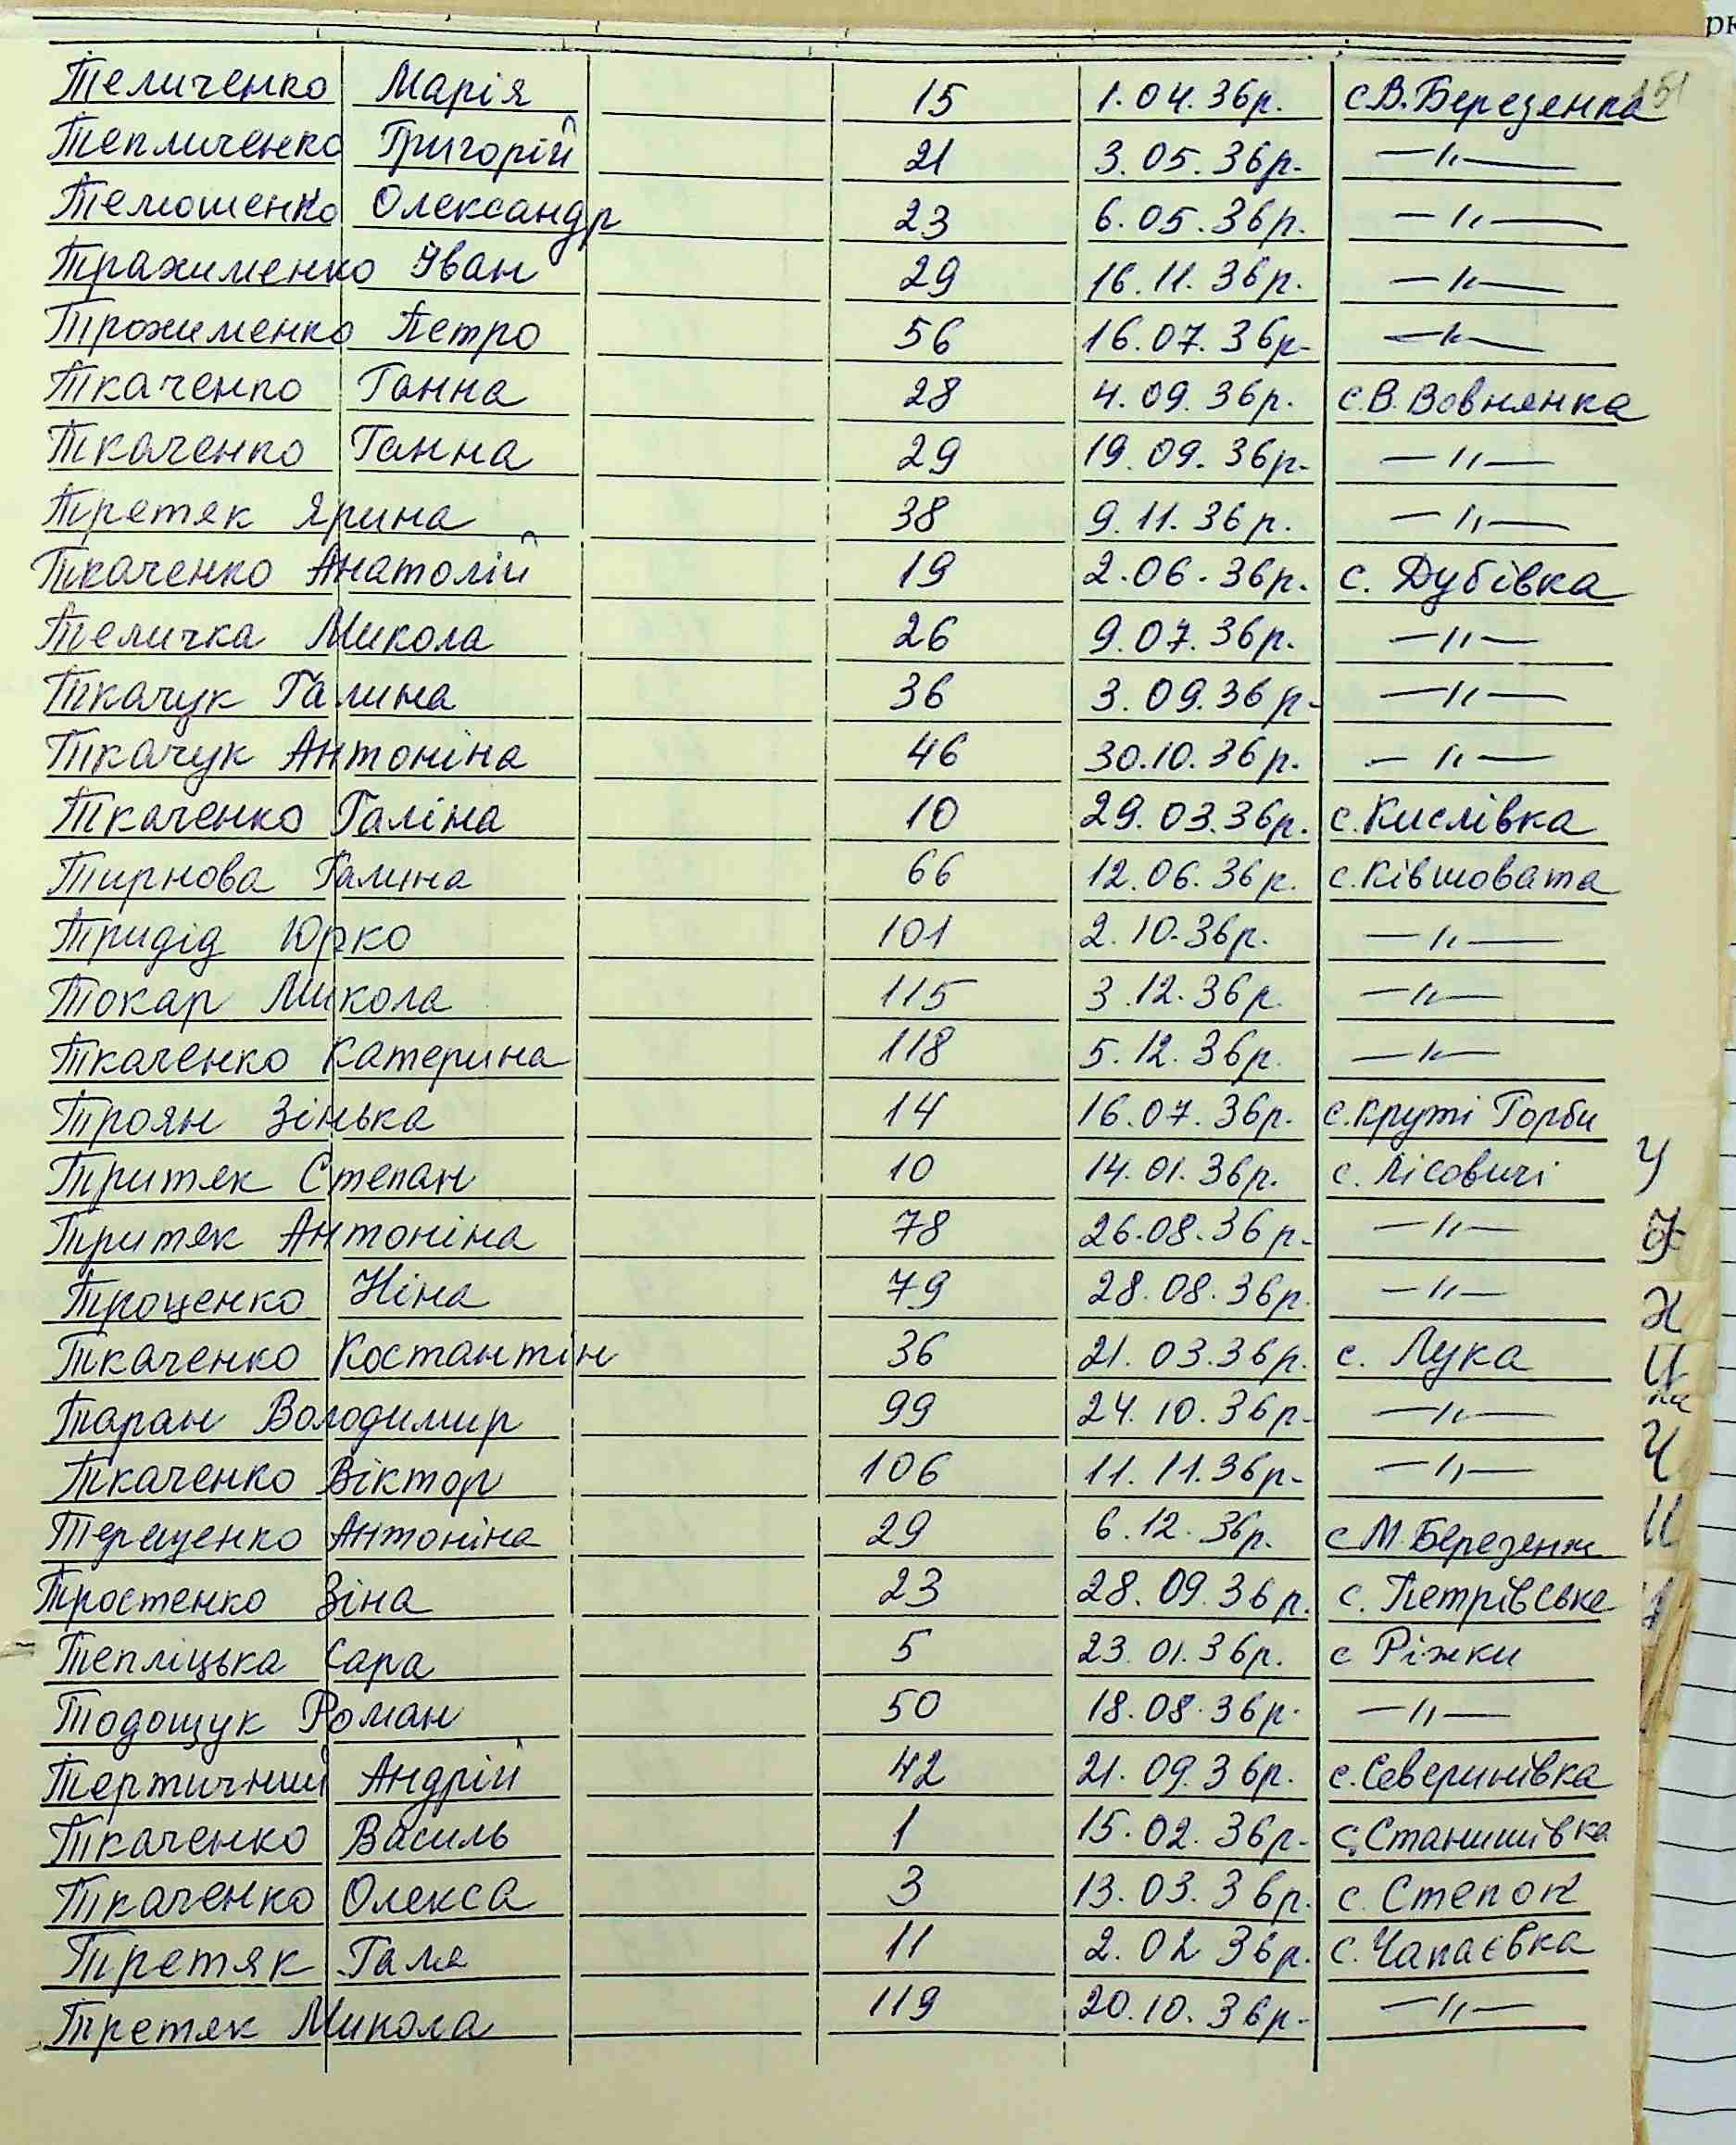 151
Теличенко Марія 15 1.04.36р. с.В.Березянка
Тепличенко Григорій 21 3.05.36р. —"—
Темошенко Олександр 23 6.05.36р. —"—
Трахименко Іван 29 16.11.36р. —"—
Трохименко Петро 56 16.07.36р. —"—
Ткаченко Ганна 28 4.09.36р. с.В.Вовнянка
Ткаченко Ганна 29 19.09.36р. —"—
Третяк Ярина 38 9.11.36р. —"—
Ткаченко Анатолій 19 2.06.36р. с. Дубівка
Теличка Микола 26 9.07.36р. —"—
Ткачук Галина 36 3.09.36р. —"—
Ткачук Антоніна 46 30.10.36р. —"—
Ткаченко Галіна 10 29.03.36р. с.Кислівка
Тирнова Галина 66 12.06.36р. с.Ківшовата
Тридід Юрко 101 2.10.36р. —"—
Токар Микола 115 3.12.36р. —"—
Ткаченко Катерина 118 5.12.36р. —"—
Троян Зінька 14 16.07.36р. с.Круті Горби
Тритяк Степан 10 14.01.36р. с. Лісовичі
Тритяк Антоніна 78 26.08.36р. —"—
Троценко Ніна 79 28.08.36р. —"—
Ткаченко Костантін 36 21.03.36р. с. Лука
Таран Володимир 99 24.10.36р. —"—
Ткаченко Віктор 106 11.11.36р. —"—
Терещенко Антоніна 29 6.12.36р. с М.Березянк
Тростенко Зіна 23 28.09.36р. с. Петрівське
Тепліцька Сара 5 23.01.36р. с Ріжки
Тодощук Роман 50 18.08.36р. —"—
Тертичний Андрій 42 21.09.36р. с.Северинівка
Ткаченко Василь 1 15.02.36р. с.Станишівка
Ткаченко Олекса 3 13.03.36р. с. Степок
Третяк Галя 11 2.02 36р. с. Чапаєвка
Третяк Микола 119 20.10.36р. —"—